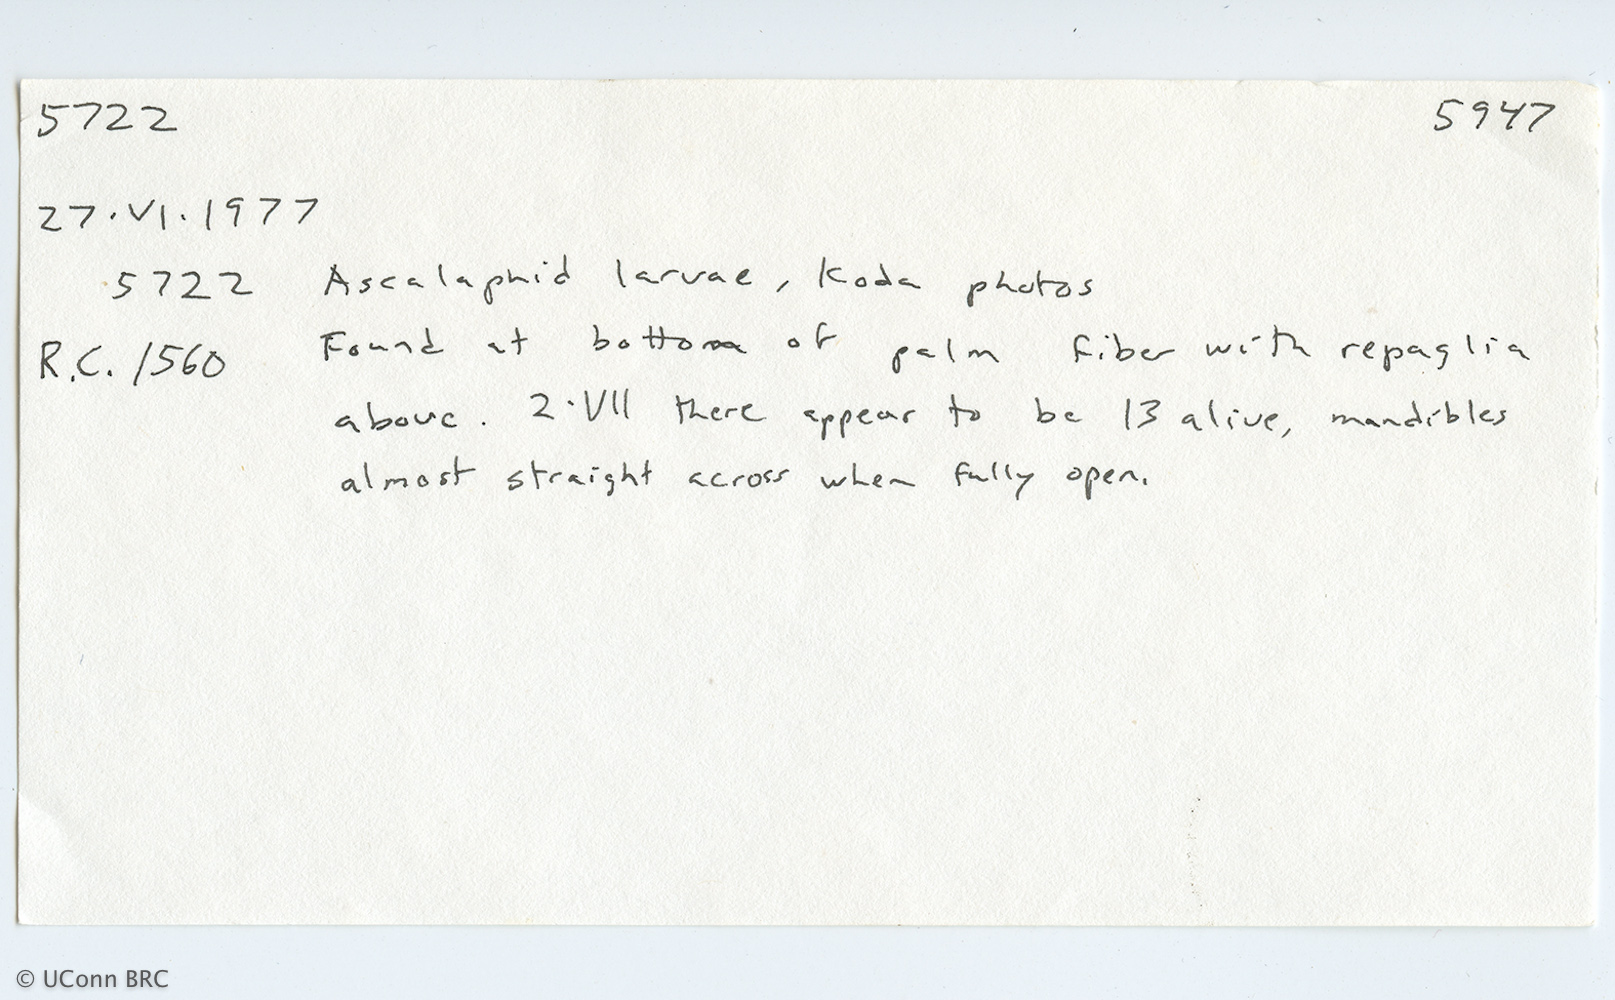 5722 5947
27·VI·1977
5722 Ascalaphid larvae, Koda photos
R.C. 1560 Found at bottom of palm fiber with repaglia
above. 2·VII there appear to be 13 alive, mandibles
almost straight across when fully open.
© UConn BRC